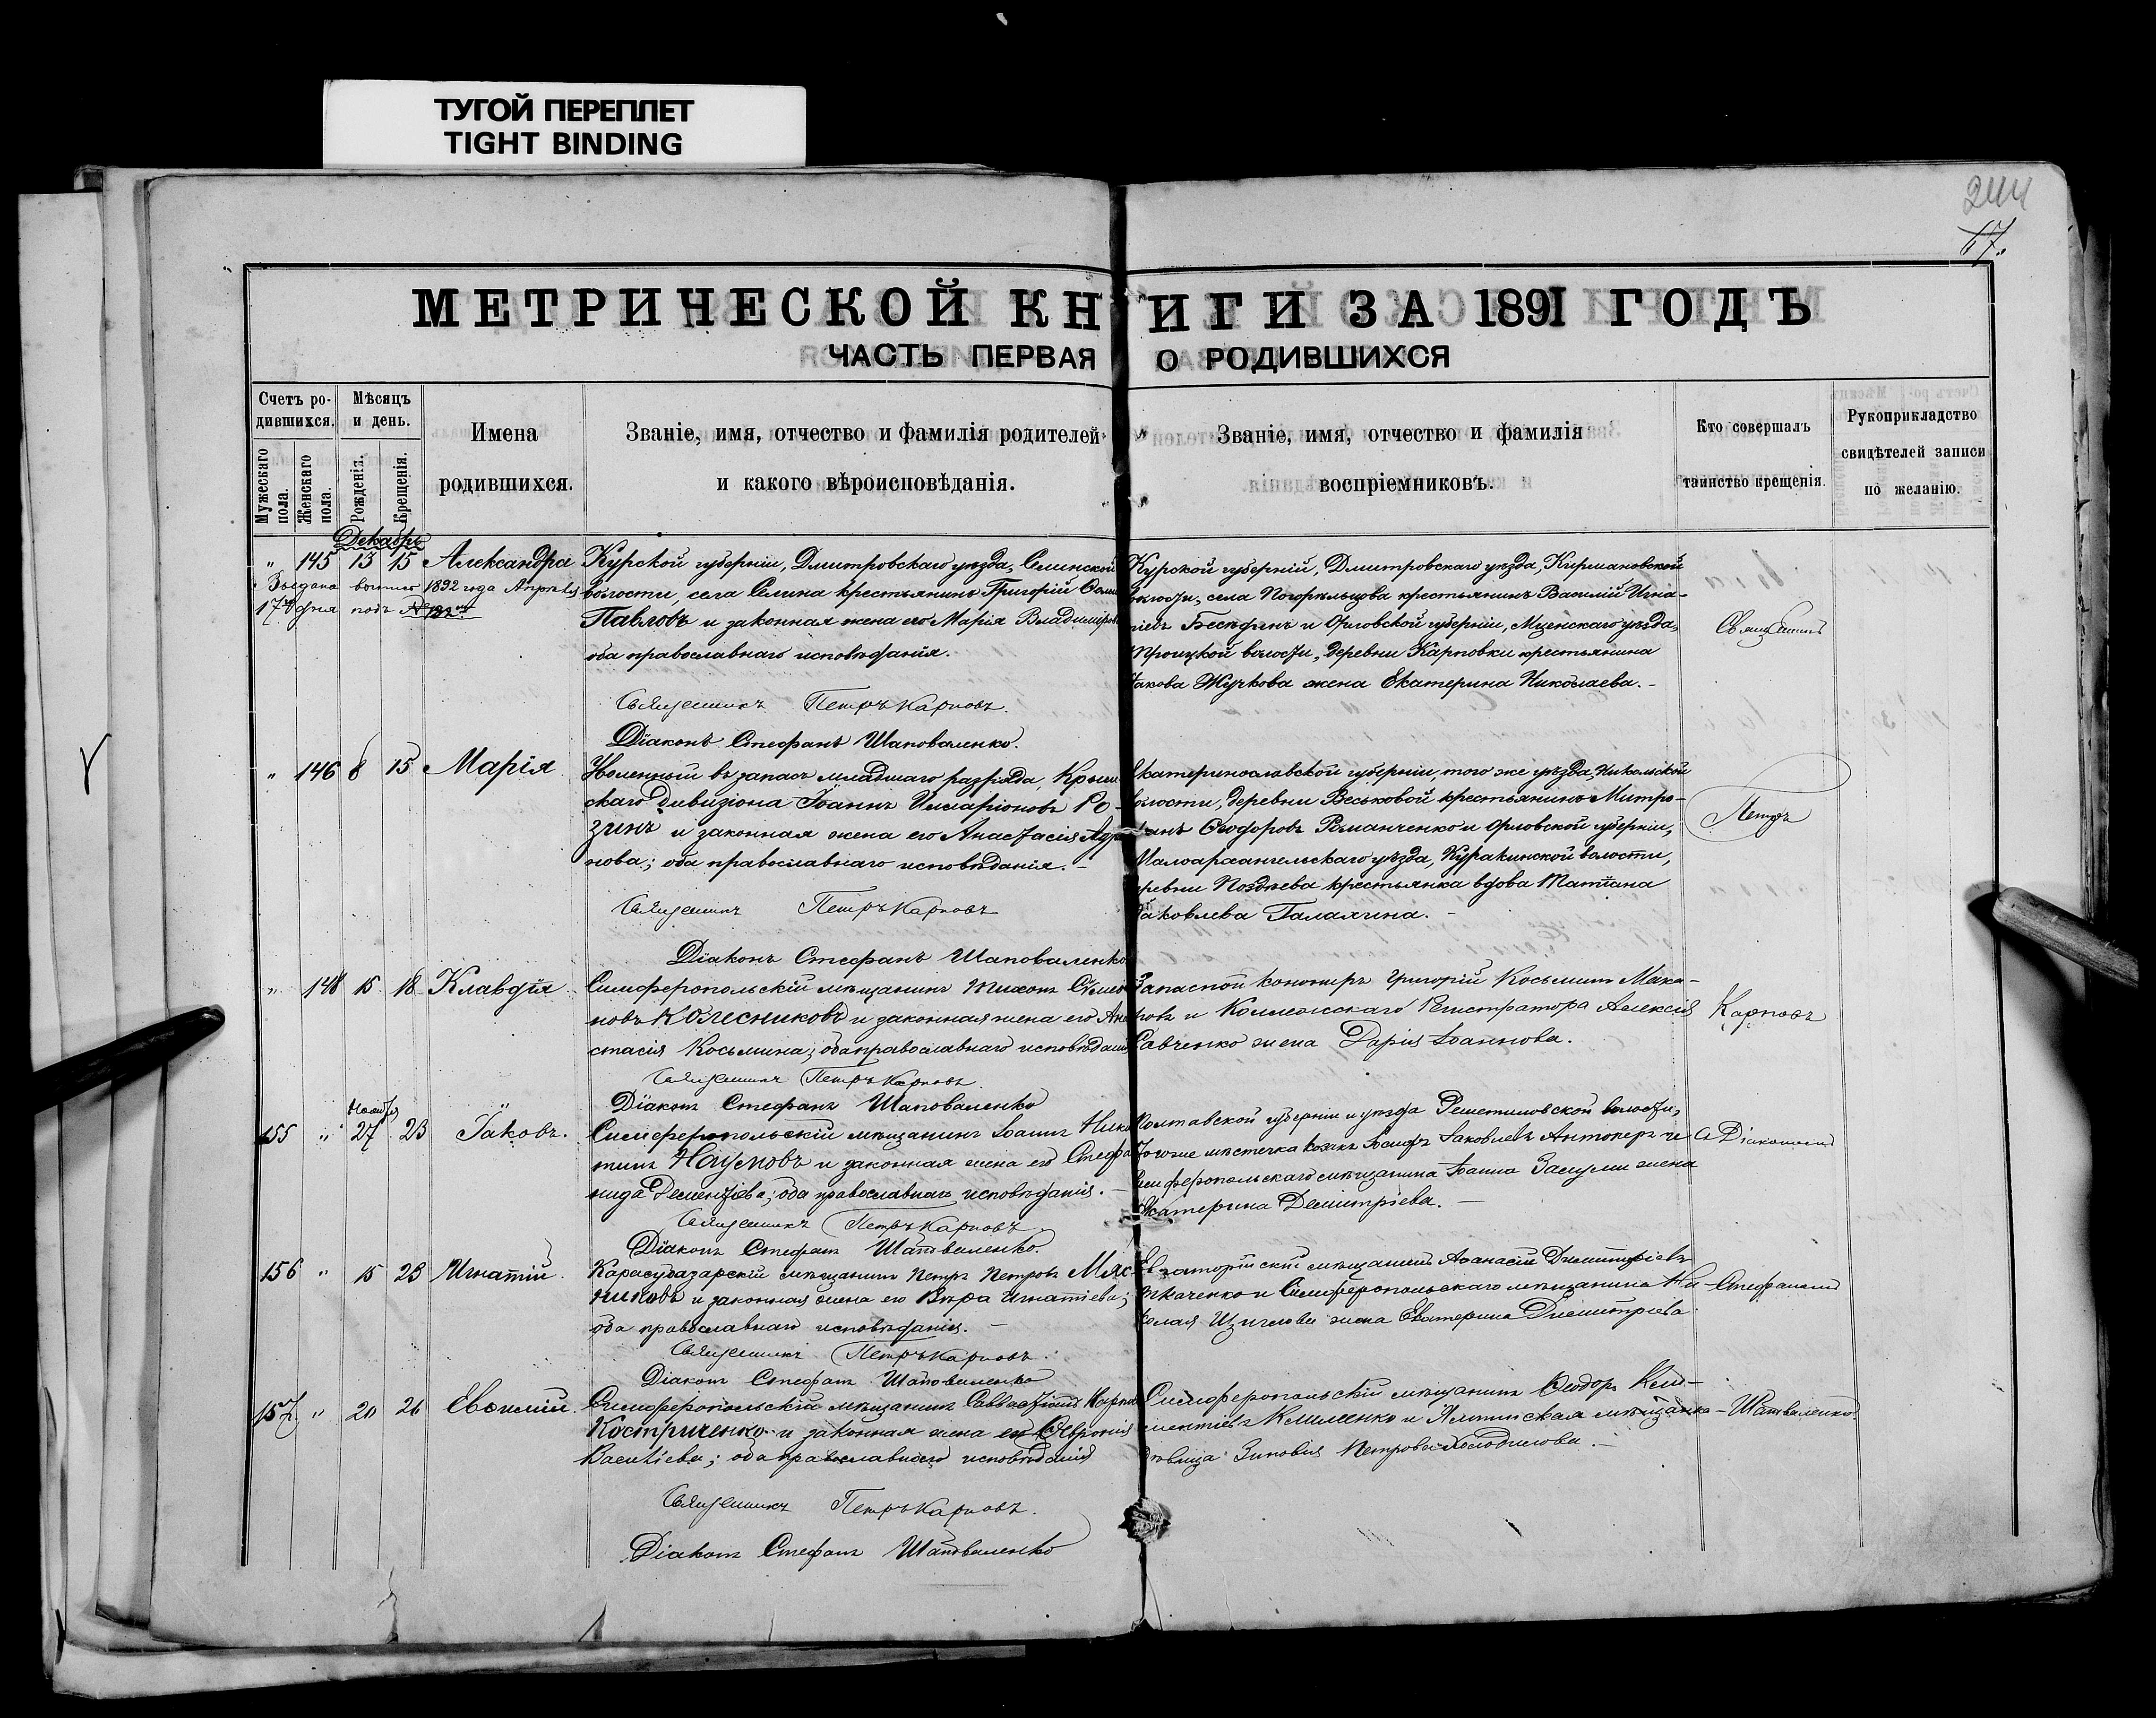 ТУГОЙ ПЕРЕПЛЕТ
TIGHT BINDING
244
67.
МЕТРИЧЕСКОЙ КНИГИ ЗА 1891 ГОДЪ
ЧАСТЬ ПЕРВАЯ О РОДИВШИХСЯ
Счетъ ро-
дившихся.
Мужескаго пола.
Женскаго пола.
Мѣсяцъ
и день.
Рожденія.
Крещенія.
Имена
родившихся.
Званіе, имя, отчество и фамилія родителей
и какого вѣроисповѣданія.
Званіе, имя, отчество и фамилія
воспріемниковъ.
Кто совершалъ
таинство крещенія.
Рукоприкладство
свидѣтелей записи
по желанію.
Декабрь
" 145 13 15 Александра
1892 года Апрѣля
17го дня подъ №
Курской губерніи, Дмитровскаго уѣзда, Селинской
волости, села Селина крестьянинъ Григорій
Павловъ и законная жена его Марія
оба православнаго исповѣданія.
Священникъ Петръ Карповъ.
Діаконъ Стефанъ Шаповаленко.
Курской губерній, Дмитровскаго уѣзда,
волости, села Погорѣльцова крестьянинъ Василій Игна-
Бесѣдинъ и Орловской губерніи, Мценскаго уѣзда,
Троицкой волости, деревни Карповки крестьянина
Іакова Жучкова жена Екатерина Николаева.-
Священникъ
" 146 8 15 Марія
Уволенный въ запасъ младшаго разряда, Крым
скаго дивизіона Іоаннъ Илларіоновъ Ро-
зинъ и законная жена его Анастасія
нова; оба православнаго исповѣданія.-
Священникъ Петръ Карповъ
Діаконъ Стефанъ Шаповаленко
Екатеринославской губерніи, того же уѣзда, Никольской
волости, деревни Веськовой крестьянинъ Митро-
Ѳеодоровъ Романченко и Орловской губерніи,
Малоархангельскаго уѣзда, Куракинской волости,
деревни Позднева крестьянка вдова Татіана
Іаковлева Галахина.-
Петръ
" 148 15 18 Клавдія
Симферопольскій мѣщанинъ Тихонъ
новъ Колесниковъ и законная жена его Ана
стасія Косьмина; оба православнаго исповѣданія
Священникъ Петръ Карповъ.
Діаконъ Стефанъ Шаповаленко
Запасной канониръ Григорій Косьминъ Мака-
ровъ и Коллежскаго Регистратора Алексія
Савченко жена Дарія Іоаннова.
Карповъ
Ноября
155 " 27 23 Іаковъ.
Симферопольскій мѣщанинъ Іоаннъ Ники
тинъ Наумовъ и законная жена его Стефа
нида Дементіева; оба православнаго исповѣданія.-
Священникъ Петръ Карповъ
Діаконъ Стефанъ Шаповаленко.
Полтавской губерніи и уѣзда Решетиловской волости,
того же мѣстечка козакъ Іосифъ Іаковлевъ
Симферопольскаго мѣщанина Іоанна жена
Екатерина Димитріева.-
Съ Діакономъ
156 " 15 23 Игнатій.
Карасубазарскій мѣщанинъ Петръ Петровъ Мяс
никовъ и законная жена его Вѣра Игнатіева;
оба православнаго исповѣданія.-
Священникъ Петръ Карповъ.
Діаконъ Стефанъ Шаповаленко
Евпаторійскій мѣщанинъ Аѳанасій Димитріевъ
Ткаченко и Симферопольскаго мѣщанина Ни-
колая жена Екатерина Димитріева
Стефаномъ
157. " 20 26 Евѳимій.
Симферопольскій мѣщанинъ Савватій
Костриченко и законная жена его Ѳевронія
Васильева; оба православнаго исповѣданія
Священникъ Петръ Карповъ.
Діаконъ Стефанъ Шаповаленко
Симферопольскій мѣщанинъ Ѳеодоръ Кли-
ментіевъ Клименко и Ялтинская мѣщанка
дѣвица Зиновія Петрова Холодилова.-
Шаповаленко.